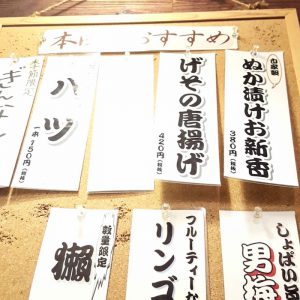 本日のおすすめ
自家製
ぬか漬けお新香
380円(税抜)
げその唐揚げ
420円(税抜)
ハツ
一本150円(税抜)
季節限定
ぎんなん
しょっぱい
男梅
フルーティーな
リンゴ
数量限定
獺